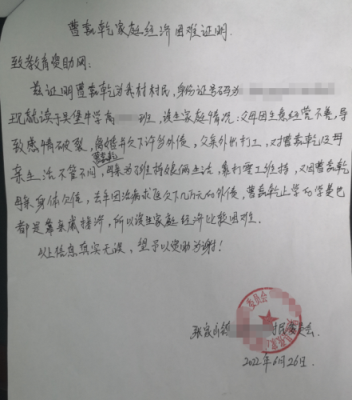 曹磊乾家庭经济困难证明
致教育资助网:
兹证明曹磊乾为我村村民,身份证号码为
现就读于吴堡中学高 班,该生家庭情况:父母因生意经营不善,导
致感情破裂,离婚并欠下许多外债,父亲外出打工,对曹磊乾及母
亲生活不管不问,母亲为了维持 俩生活,靠打零工维持,又因曹磊乾
母亲身体欠佳,去年因治病求医欠下几万元外债,曹磊乾上学的学费也
都是靠亲戚接济,所以该生家庭经济比较困难。
以上信息真实无误,望予以资助为谢!
张家山镇 村民委员会
2022年6月26日